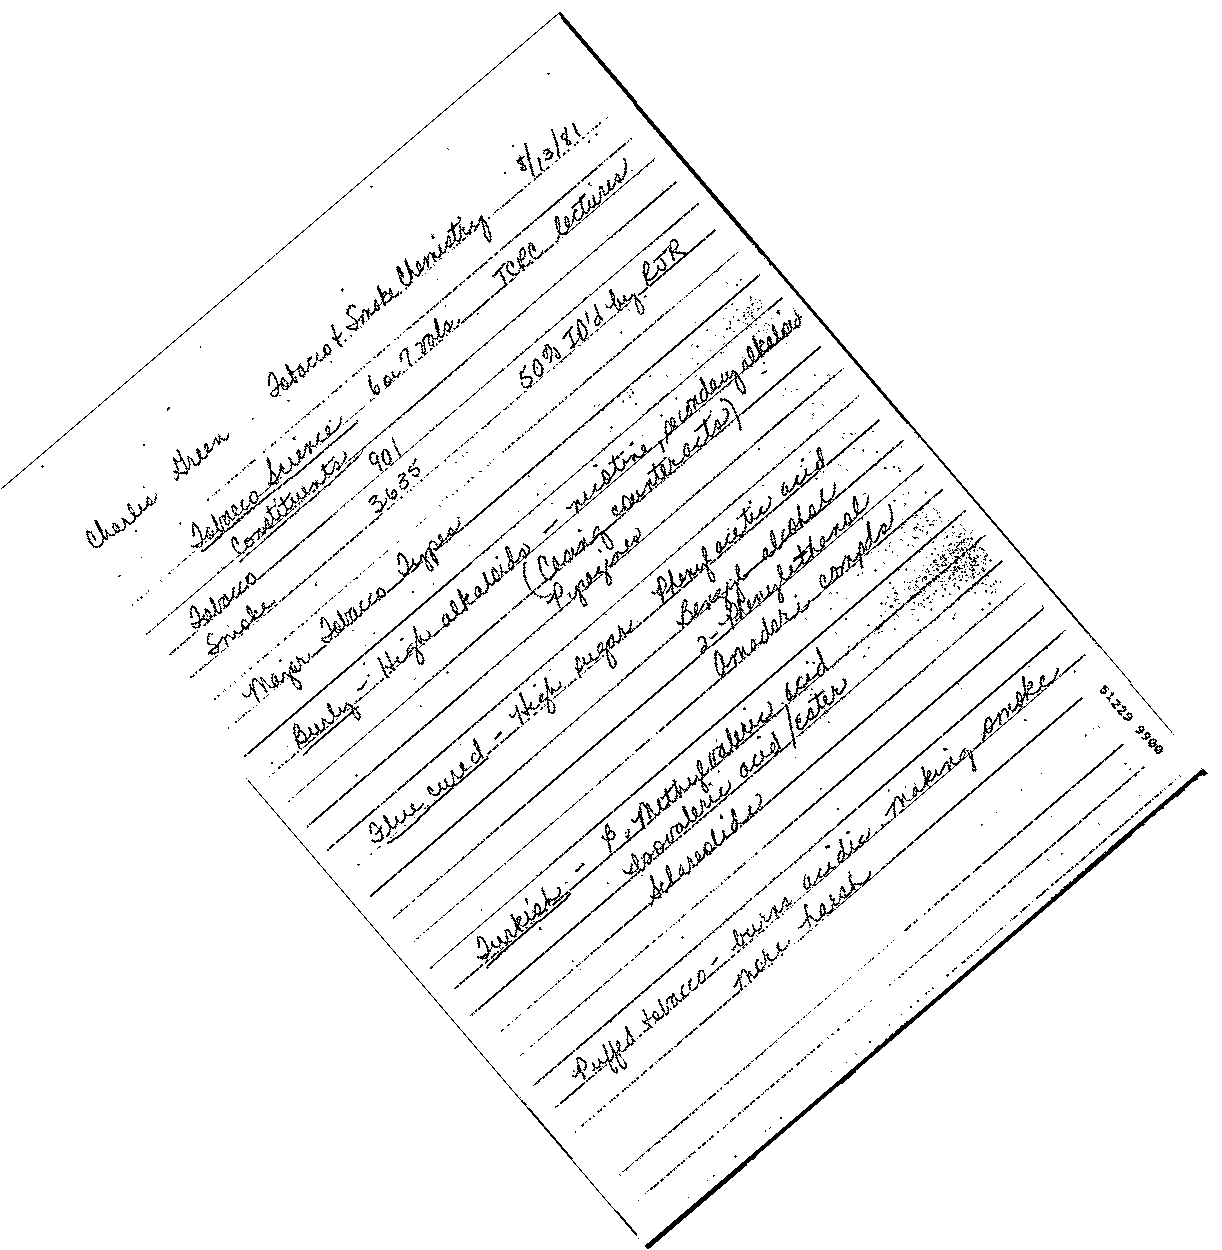 8/13/81
Charlie Green Tobacco & Smoke Chemistry
Tobacco Science 6 or 7 vols. TCRC lectures
Constituents
Tobacco 901 50% ID'd by RJR
Smoke 3635
Major Tobacco Types
Burly - High alkaloids - nicotine, secondary alkaloids
(Casing counteracts)
Pyrazines
Flue cured - High sugars Phenylacetic acid
Benzyl alcohol
2-Phenylethanol
Amadori compds
Turkish - β-Methylvaleric acid
Isovaleric acid/ester
Sclareolide
Puffed tobacco - burns acidic making smoke
more harsh
51229 9900